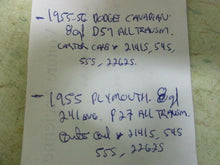 - 1955-56 DODGE CANADIAN
8cyl D57 ALL TRANSM.
CARTER CARB # 2141S, 54S,
55S, 2262S.
- 1955 PLYMOUTH. 8cyl
241 eng. P27 ALL TRANSM.
Carb # 2141S, 54S
55S, 2262S